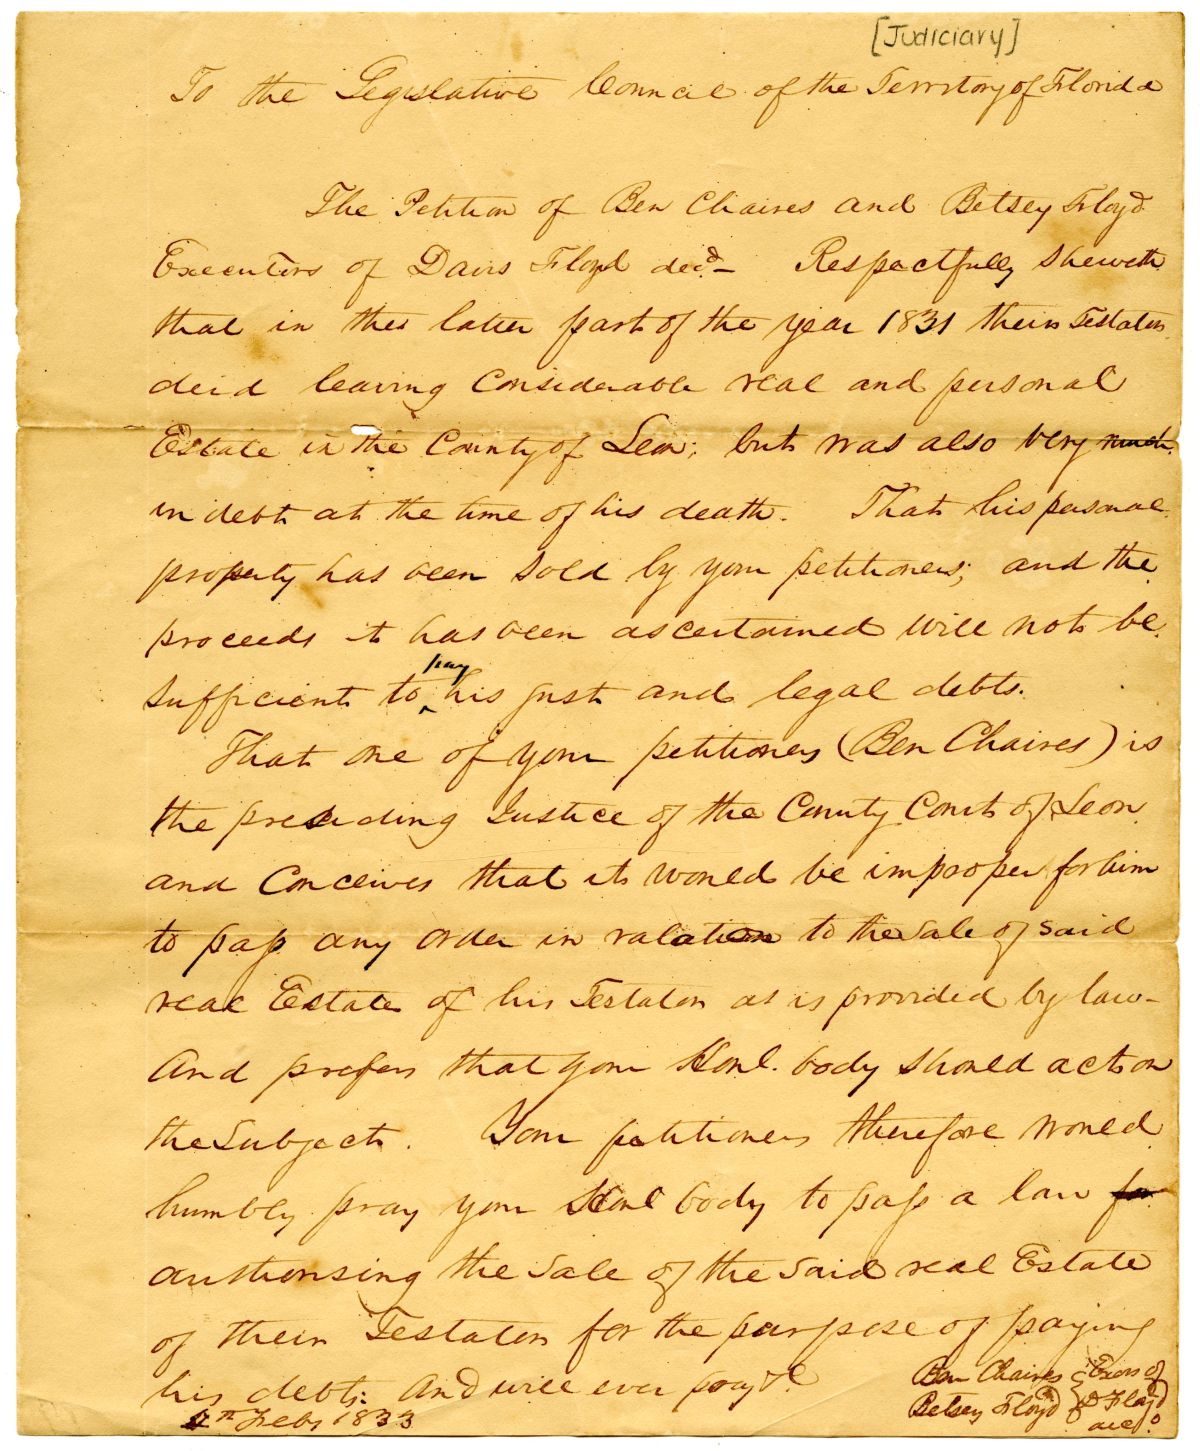 [Judiciary]
To the Legislative Council of the Territory of Florida
The Petition of Ben Chaires and Betsey Floyd
Executors of Davis Floyd decd- Respectfully sheweth
that in the latter part of the year 1831 their Testator
deid leaving considerable real and personal
Estate in the County of Leon; but was also very much
in debt at the time of his death. That his personal
property has been sold by your petitioners; and the
proceeds it has been ascertained will not be
sufficient to pay his just and legal debts.
That one of your petitioners (Ben Chaires) is
the presiding Justice of the County Court of Leon
and Conceives that it would be improper for him
to pass any order in ralation to the sale of said
real Estate of his Testator as is provided by law-
And prefers that your Honl. body should act on
the Subject. Your petitioners therefore would
humbly pray your Honl body to pass a law for
authorising the sale of the said real Estate
of their Testator for the purpose of paying
his debts: And will ever pray &c.
Ben Chaires Exors of
Betsey Floyd D Floyd
decd.
4th Feby 1833